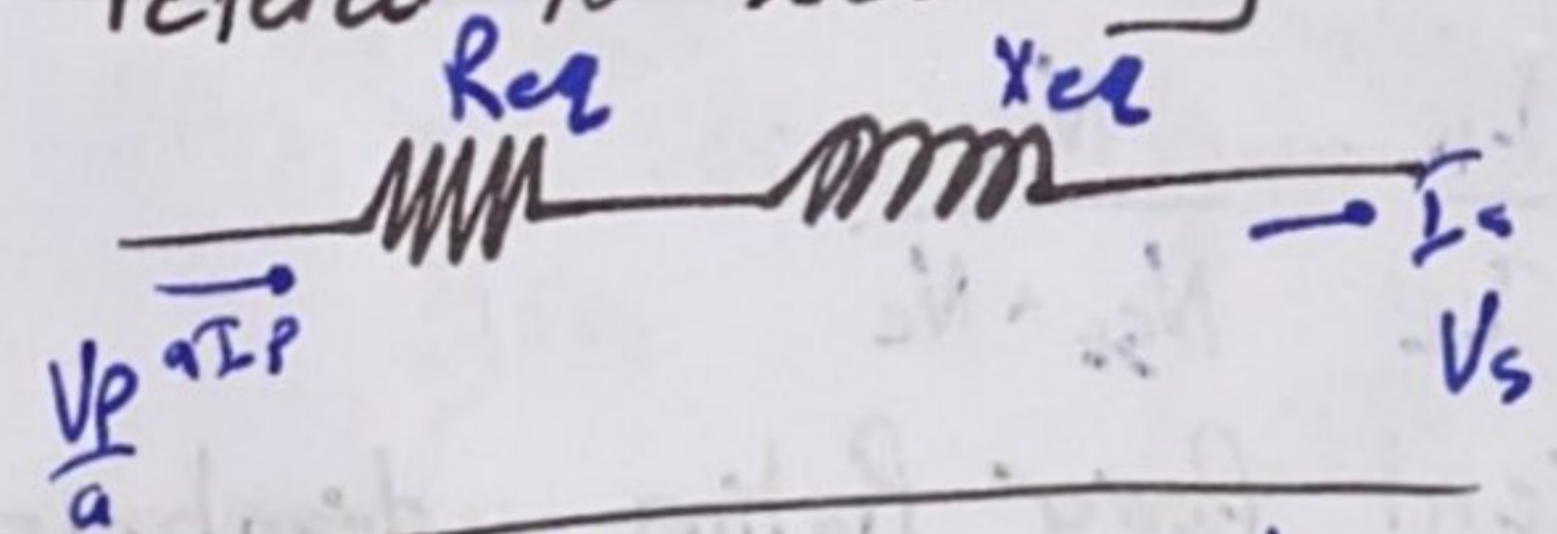 Req Xeq
aIp Is
Vp/a Vs